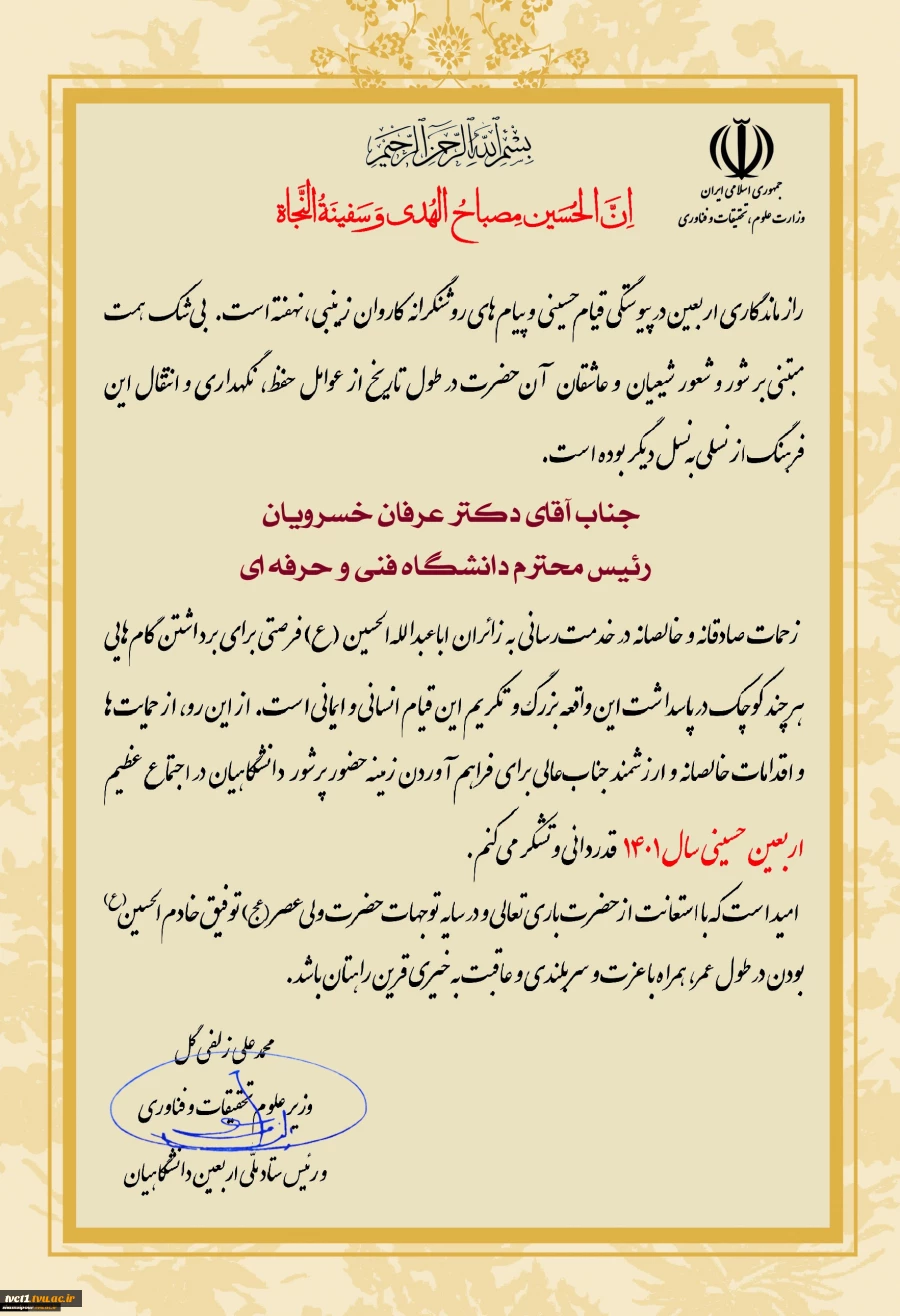 بسم الله الرحمن الرحیم
جمهوری اسلامی ایران
وزارت علوم، تحقیقات و فناوری
اِنَّ الحُسَین مِصباحُ الهُدی وَ سَفینَةُ النَّجاة
راز ماندگاری اربعین در پیوستگی قیام حسینی و پیام های روشنگرانه کاروان زینبی، نهفته است. بی شک همت
مبتنی بر شور و شعور شیعیان و عاشقان آن حضرت در طول تاریخ از عوامل حفظ، نگهداری و انتقال این
فرهنگ از نسلی به نسل دیگر بوده است.
جناب آقای دکتر عرفان خسرویان
رئیس محترم دانشگاه فنی و حرفه ای
زحمات صادقانه و خالصانه در خدمت رسانی به زائران اباعبدالله الحسین (ع) فرصتی برای برداشتن گام هایی
هرچند کوچک در پاسداشت این واقعه بزرگ و تکریم این قیام انسانی و ایمانی است. از این رو، از حمایت ها
و اقدامات خالصانه و ارزشمند جناب عالی برای فراهم آوردن زمینه حضور پرشور دانشگاهیان در اجتماع عظیم
اربعین حسینی سال ۱۴۰۱ قدردانی و تشکر می کنم.
امید است که با استعانت از حضرت باری تعالی و در سایه توجهات حضرت ولی عصر (عج) توفیق خادم الحسین (ع)
بودن در طول عمر، همراه با عزت و سربلندی و عاقبت به خیری قرین راهتان باشد.
محمد علی زلفی گل
وزیر علوم تحقیقات و فناوری
و رئیس ستاد ملّی اربعین دانشگاهیان
tvct1.tvu.ac.ir